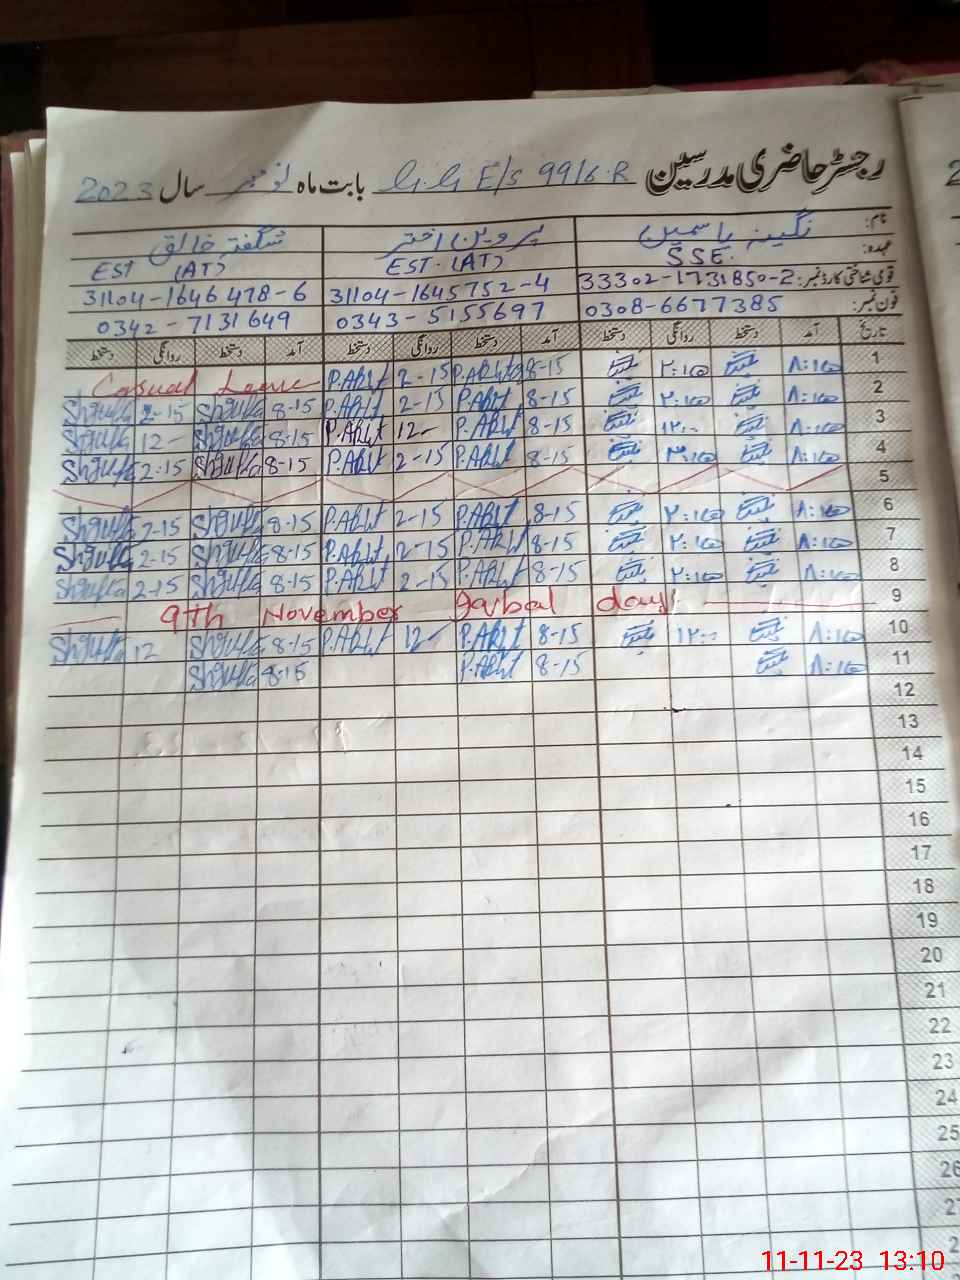 رجسٹر حاضری مدرسین G.G.E/S 99/6.R بابت ماہ نومبر سال 2023
نام: نگینہ یاسمین پروین اختر شگفتہ خالق
عہدہ: SSE. EST.(AT) EST (AT)
قومی شناختی کارڈ نمبر: 33302-1731850-2 31104-1645752-4 31104-1646478-6
فون نمبر: 0308-6677385 0343-5155697 0342-7131649
تاریخ آمد دستخط روانگی دستخط آمد دستخط روانگی دستخط آمد دستخط روانگی دستخط
1 ۸:۱۵ ۲:۱۵ 8-15 P.Akht 2-15 P.Akht Casual Leave
2 ۸:۱۵ ۲:۱۵ 8-15 P.Akht 2-15 P.Akht 8-15 Shgufta 2-15 Shgufta
3 ۸:۱۵ ۱۲:۰۰ 8-15 P.Akht 12- P.Akht 8-15 Shgufta 12- Shgufta
4 ۸:۱۵ ۲:۱۵ 8-15 P.Akht 2-15 P.Akht 8-15 Shgufta 2-15 Shgufta
5
6 ۸:۱۵ ۲:۱۵ 8-15 P.Akht 2-15 P.Akht 8-15 Shgufta 2-15 Shgufta
7 ۸:۱۵ ۲:۱۵ 8-15 P.Akht 2-15 P.Akht 8-15 Shgufta 2-15 Shgufta
8 ۸:۱۵ ۲:۱۵ 8-15 P.Akht 2-15 P.Akht 8-15 Shgufta 2-15 Shgufta
9 9th November Iqbal day
10 ۸:۱۵ ۱۲:۰۰ 8-15 P.Akht 12- P.Akht 8-15 Shgufta 12 Shgufta
11 ۸:۱۵ 8-15 P.Akht 8-15 Shgufta
12
13
14
15
16
17
18
19
20
21
22
23
24
25
26
11-11-23 13:10